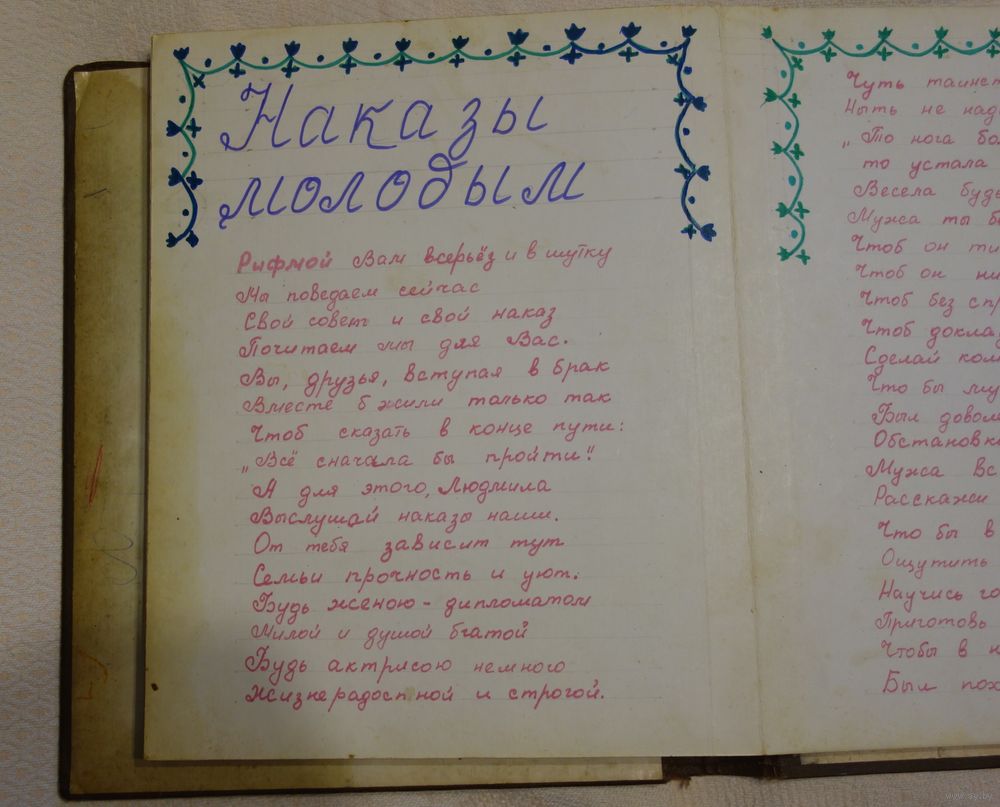 Наказы
молодым
Рифмой Вам всерьёз и в шутку
Мы поведаем сейчас
Свой совет и свой наказ
Почитаем мы для Вас.
Вы, друзья, вступая в брак
Вместе б жили только так
Чтоб сказать в конце пути:
„Всё сначала бы пройти!"
А для этого, Людмила
Выслушай наказы наши.
От тебя зависит тут
Семьи прочность и уют.
Будь женою - дипломатом
Милой и душой бгатой
Будь актрисою немного
Жизнерадостной и строгой.
Чуть
Ныть не
„То нога
то устала
Весела
Мужа ты
Чтоб он
Чтоб он
Чтоб без
Чтоб
Сделай
Что бы
Был
Мужа
Расскажи
Что бы в
Ощутить
Научись
Приготовь
Чтобы в
Был